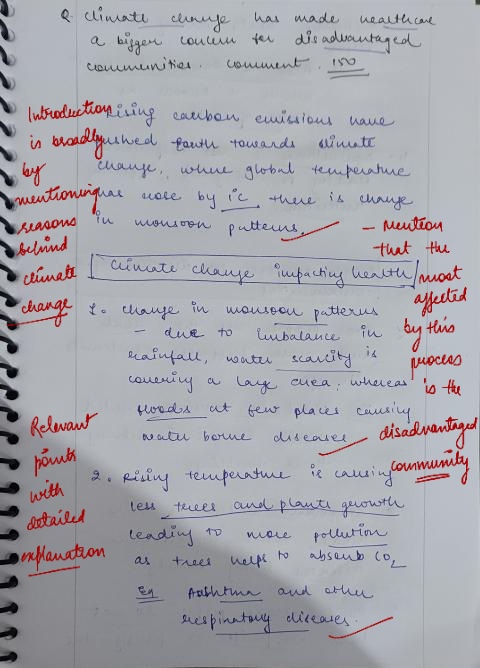 Q. climate change has made healthcare
a bigger concern for disadvantaged
communities. comment. 150
Rising carbon emissions have
pushed Earth towards climate
change, where global temperature
has rose by 1°C there is change
in monsoon patterns.
Introduction
is broadly
by
mentioning
reasons
behind
climate
change
- Mention
that the
most
affected
by this
process
is the
disadvantaged
community
Climate change impacting health
1. change in monsoon patterns
- due to imbalance in
rainfall, water scarcity is
covering a large area, whereas
floods at few places causing
water borne diseases
Relevant
points
with
detailed
explanation
2. Rising temperature is causing
less trees and plants growth
leading to more pollution
as trees helps to absorb CO2
Eg Asthtma and other
respiratory diseases.